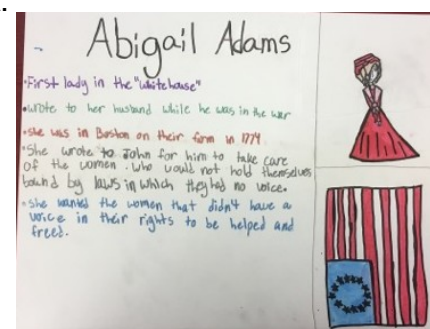 Abigail Adams
•First lady in the "Whitehouse"
•wrote to her husband while he was in the war
•she was in Boston on their farm in 1774
•She wrote to John for him to take care
of the women. Who would not hold themselves
bound by laws in which they had no voice.
•she wanted the women that didn't have a
voice in their rights to be helped and
freed.